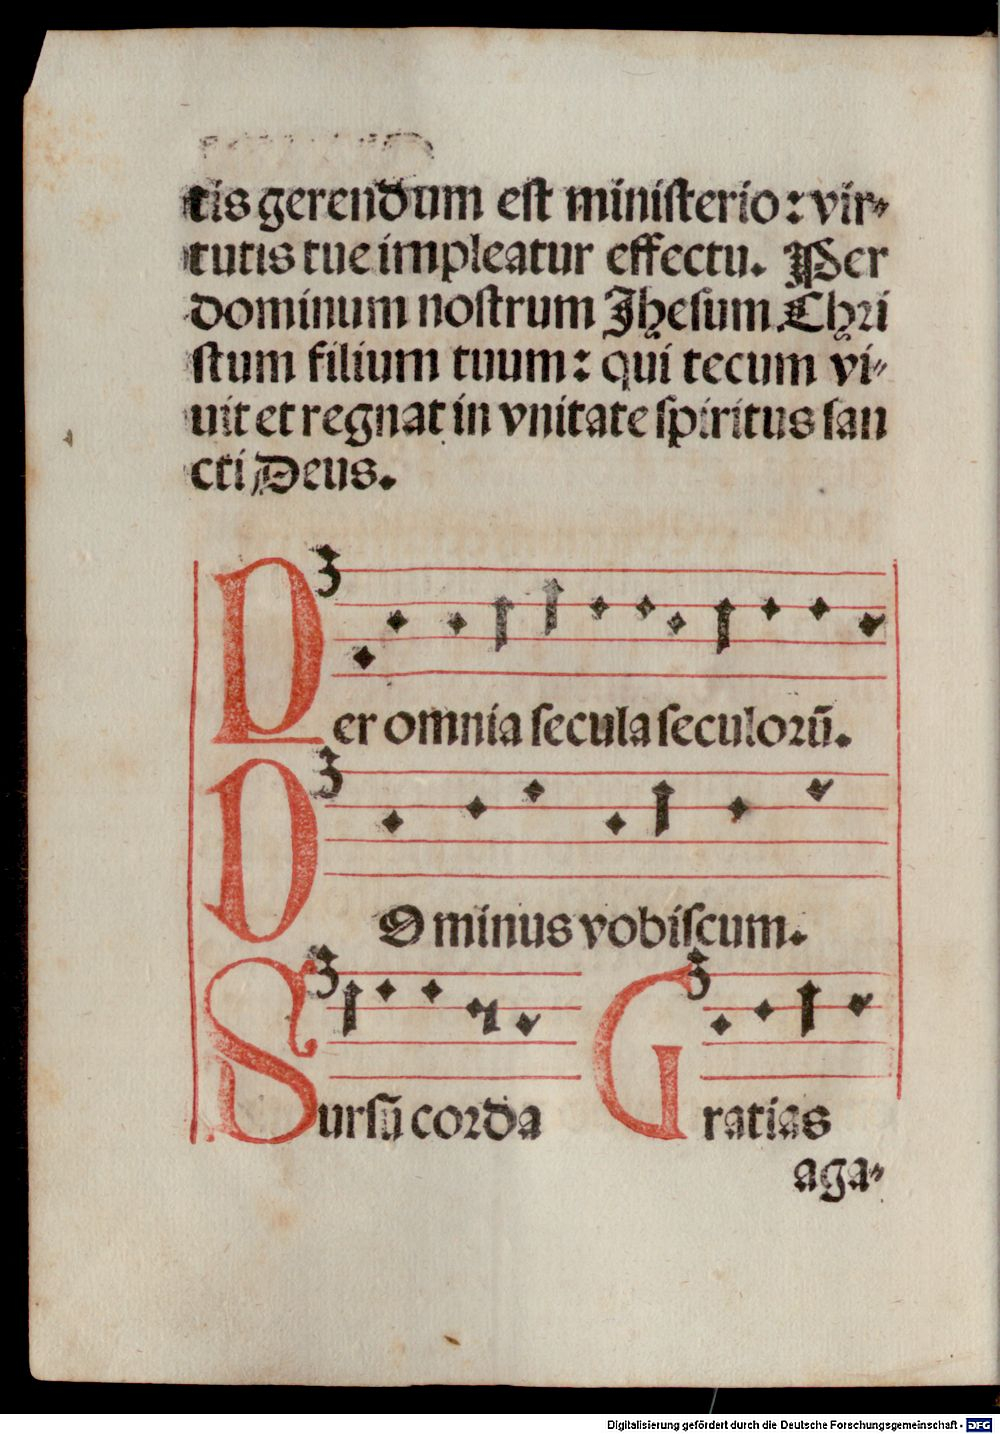 tis gerendum est ministerio: vir-
tutis tue impleatur effectu. Per
dominum nostrum Jhesum Chri
stum filium tuum: qui tecum vi-
uit et regnat in vnitate spiritus san
cti Deus.
Per omnia secula seculorū.
DOminus vobiscum.
Sursū corda Gratias
aga-
Digitalisierung gefördert durch die Deutsche Forschungsgemeinschaft - DFG